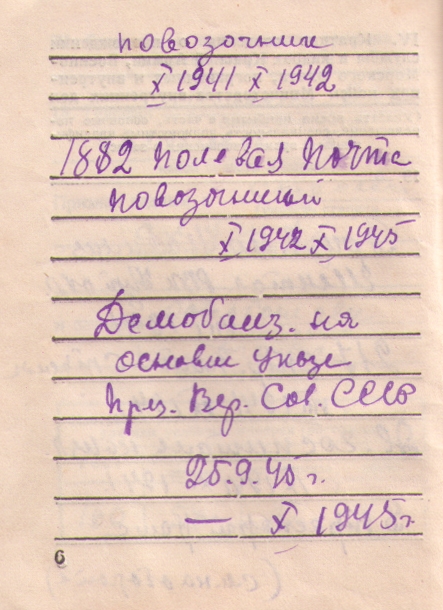 повозочник
X 1941 X 1942
1882 полевая почта
повозочный
X 1942 X 1945
Демобилиз. на
основан. указа
през. Вер. Сов. СССР
25.9.45 г.
— X 1945 г.
6